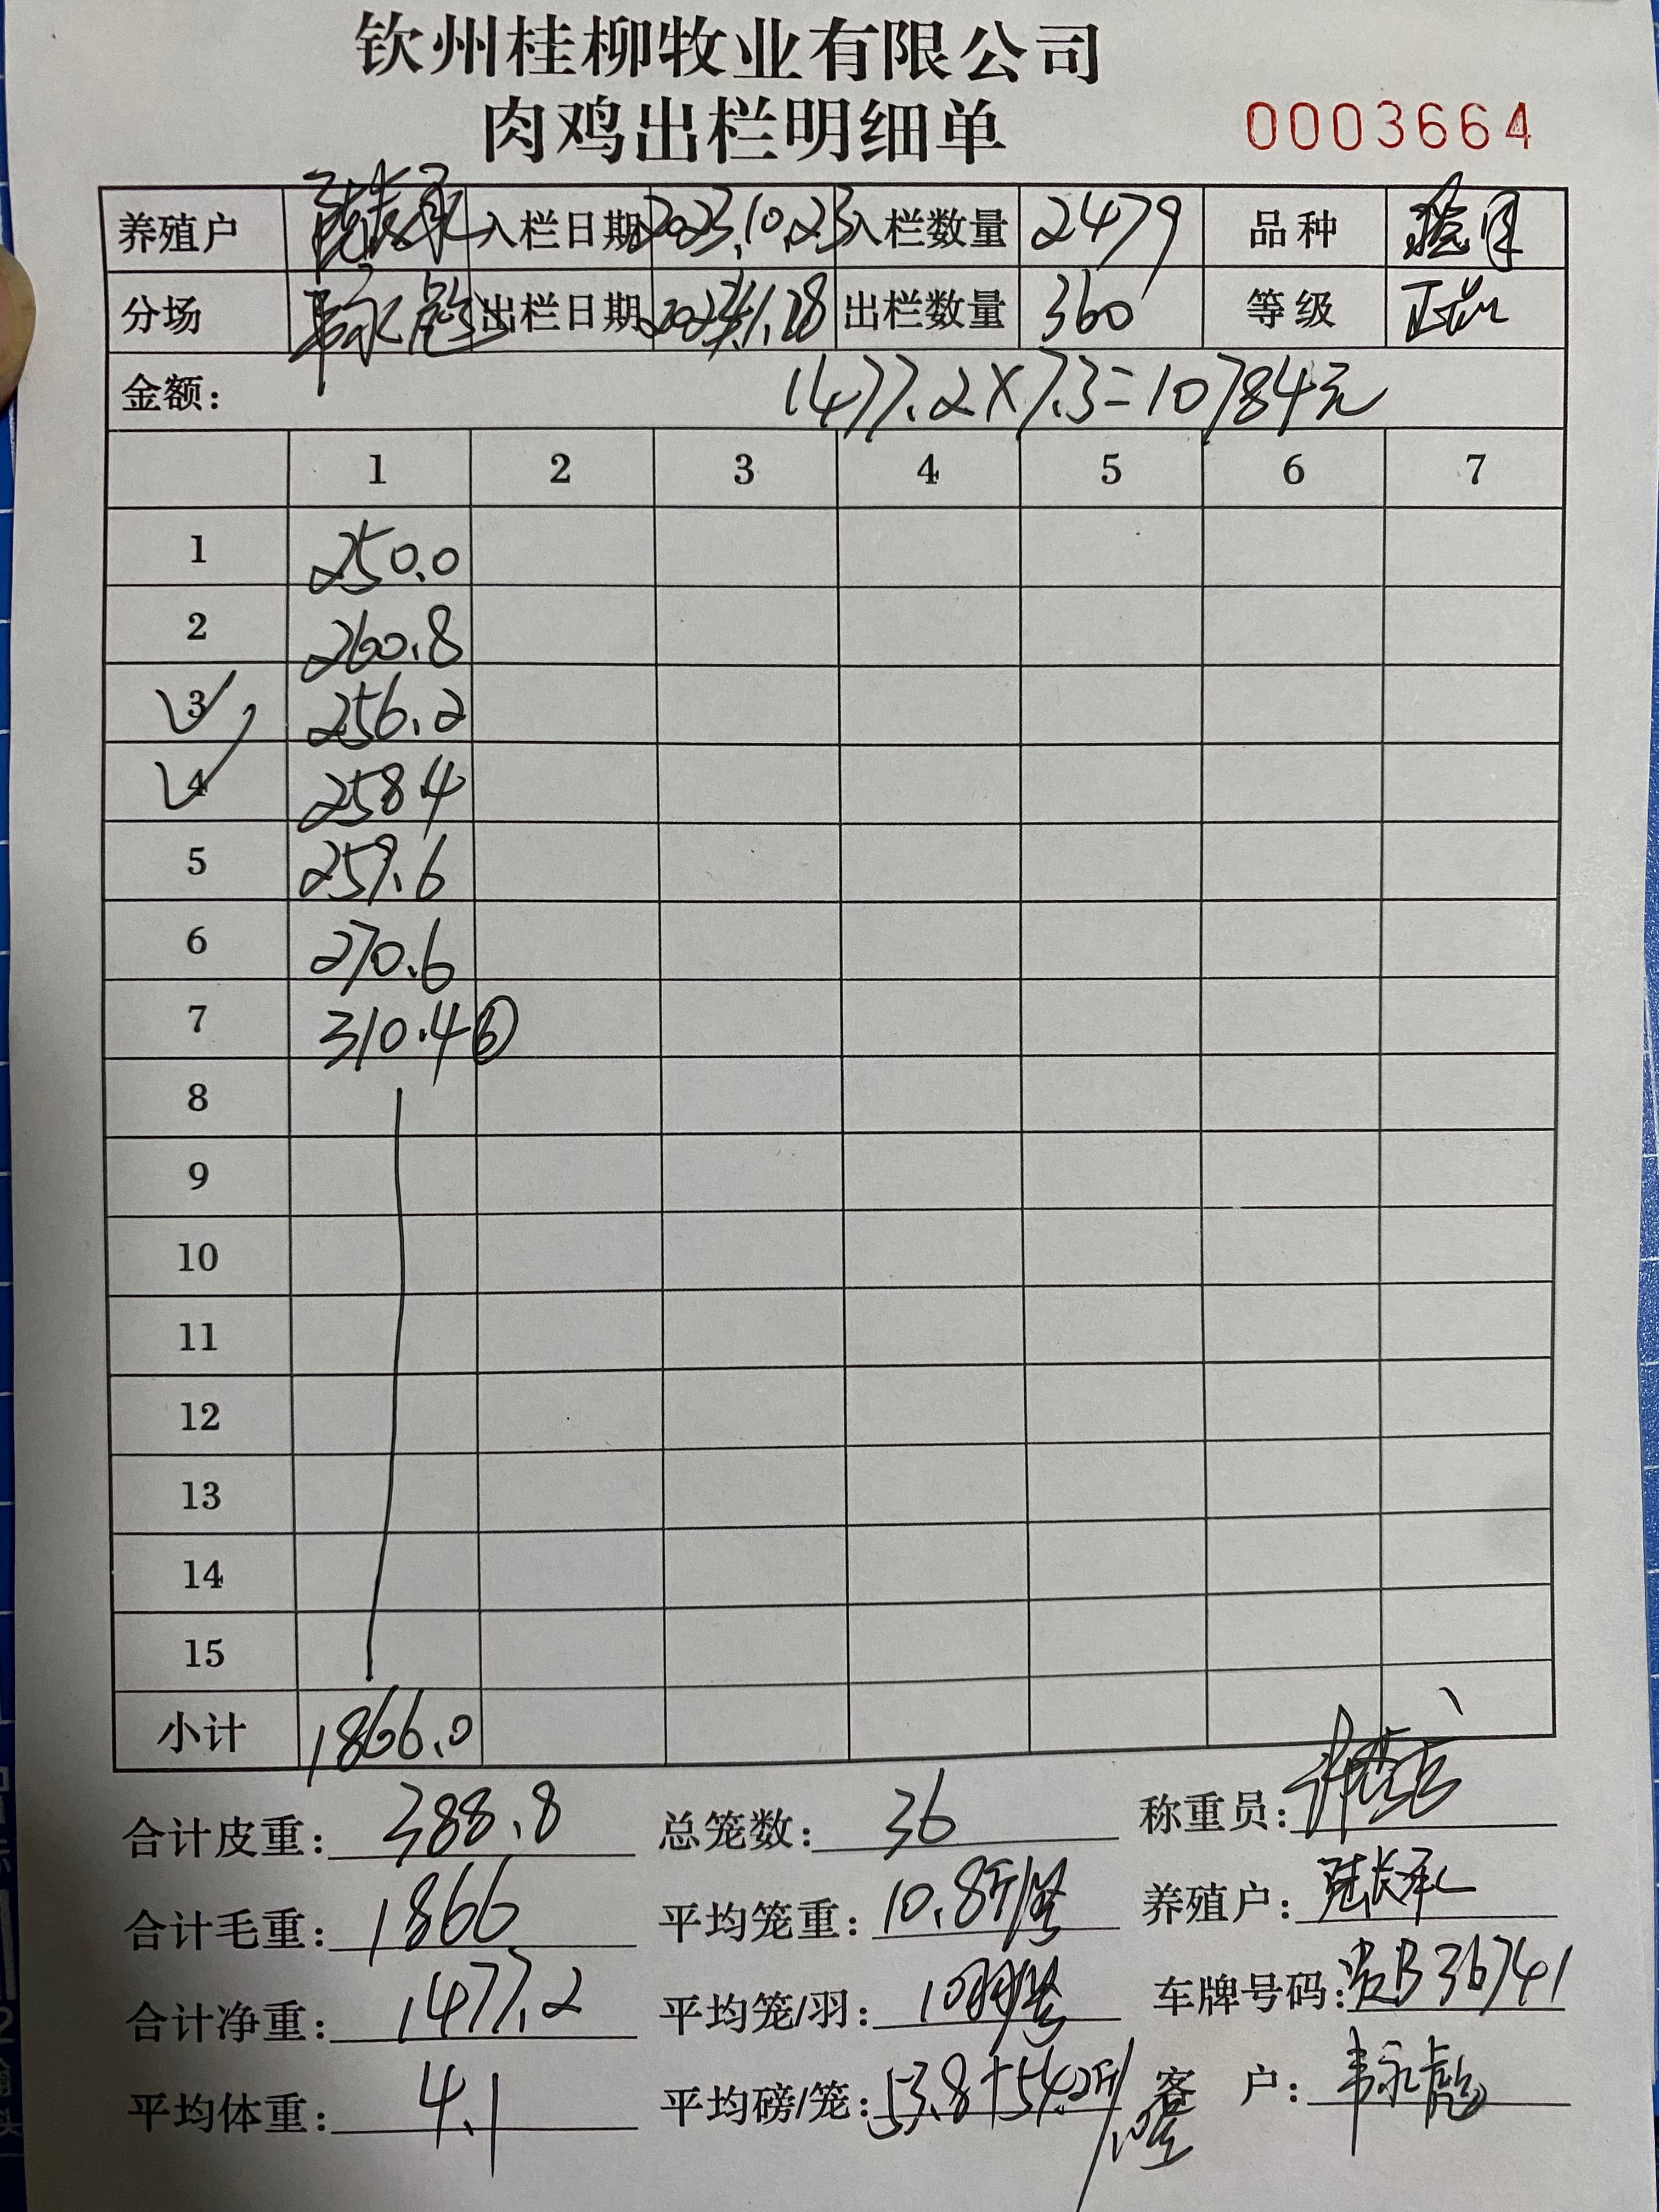 钦州桂柳牧业有限公司
肉鸡出栏明细单 0003664
养殖户 入栏日期 2023.10.23 入栏数量 2479 品种
分场 韦永 出栏日期 1.28 出栏数量 360 等级 正品
金额: 1477.2×7.3=10784元
1 2 3 4 5 6 7
1 250.0
2 260.8
3 256.2
4 258.4
5 259.6
6 270.6
7 310.4 ⑥
8
9
10
11
12
13
14
15
小计 1866.0
合计皮重: 388.8 总笼数: 36 称重员:
合计毛重: 1866 平均笼重: 10.8斤/笼 养殖户: 陆长承
合计净重: 1477.2 平均笼/羽: 10羽/笼 车牌号码: 贵B36741
平均体重: 4.1 平均磅/笼: 53.8+54.2斤/ 客 户: 韦永